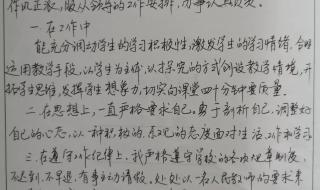 作风正派，服从领导的工作安排，办事认真负责。
一、在工作中
能充分调动学生的学习积极性，激发学生的学习情绪，合理
运用教学手段，以学生为主体，以探究的方式创设教学情境，开
拓学生思维，发挥学生想象力，切实向课堂四十分钟要质量。
二、在思想上，一直严格要求自己。勇于剖析自己，调整好
自己的心态，以一种积极的、乐观的态度面对生活、工作和学习
三、在遵守工作纪律上，我严格遵守学校的各项规章制度，
不迟到、不早退、有事主动请假。处处以一名人民教师的要求来